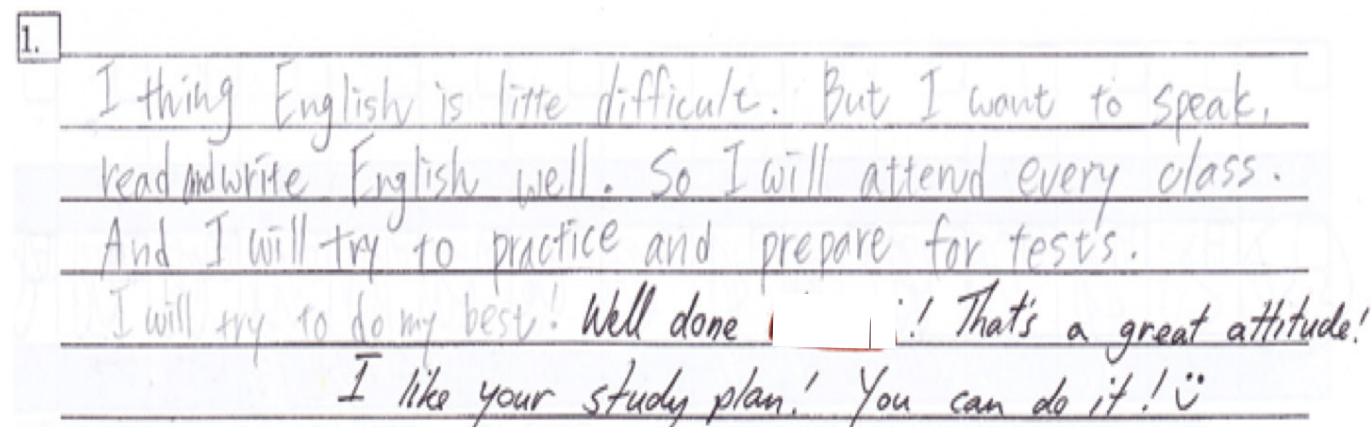 1.
I thing English is litte difficult. But I want to speak,
read and write English well. So I will attend every class.
And I will try to practice and prepare for tests.
I will try to do my best! Well done ! That's a great attitude!
I like your study plan! You can do it! ü